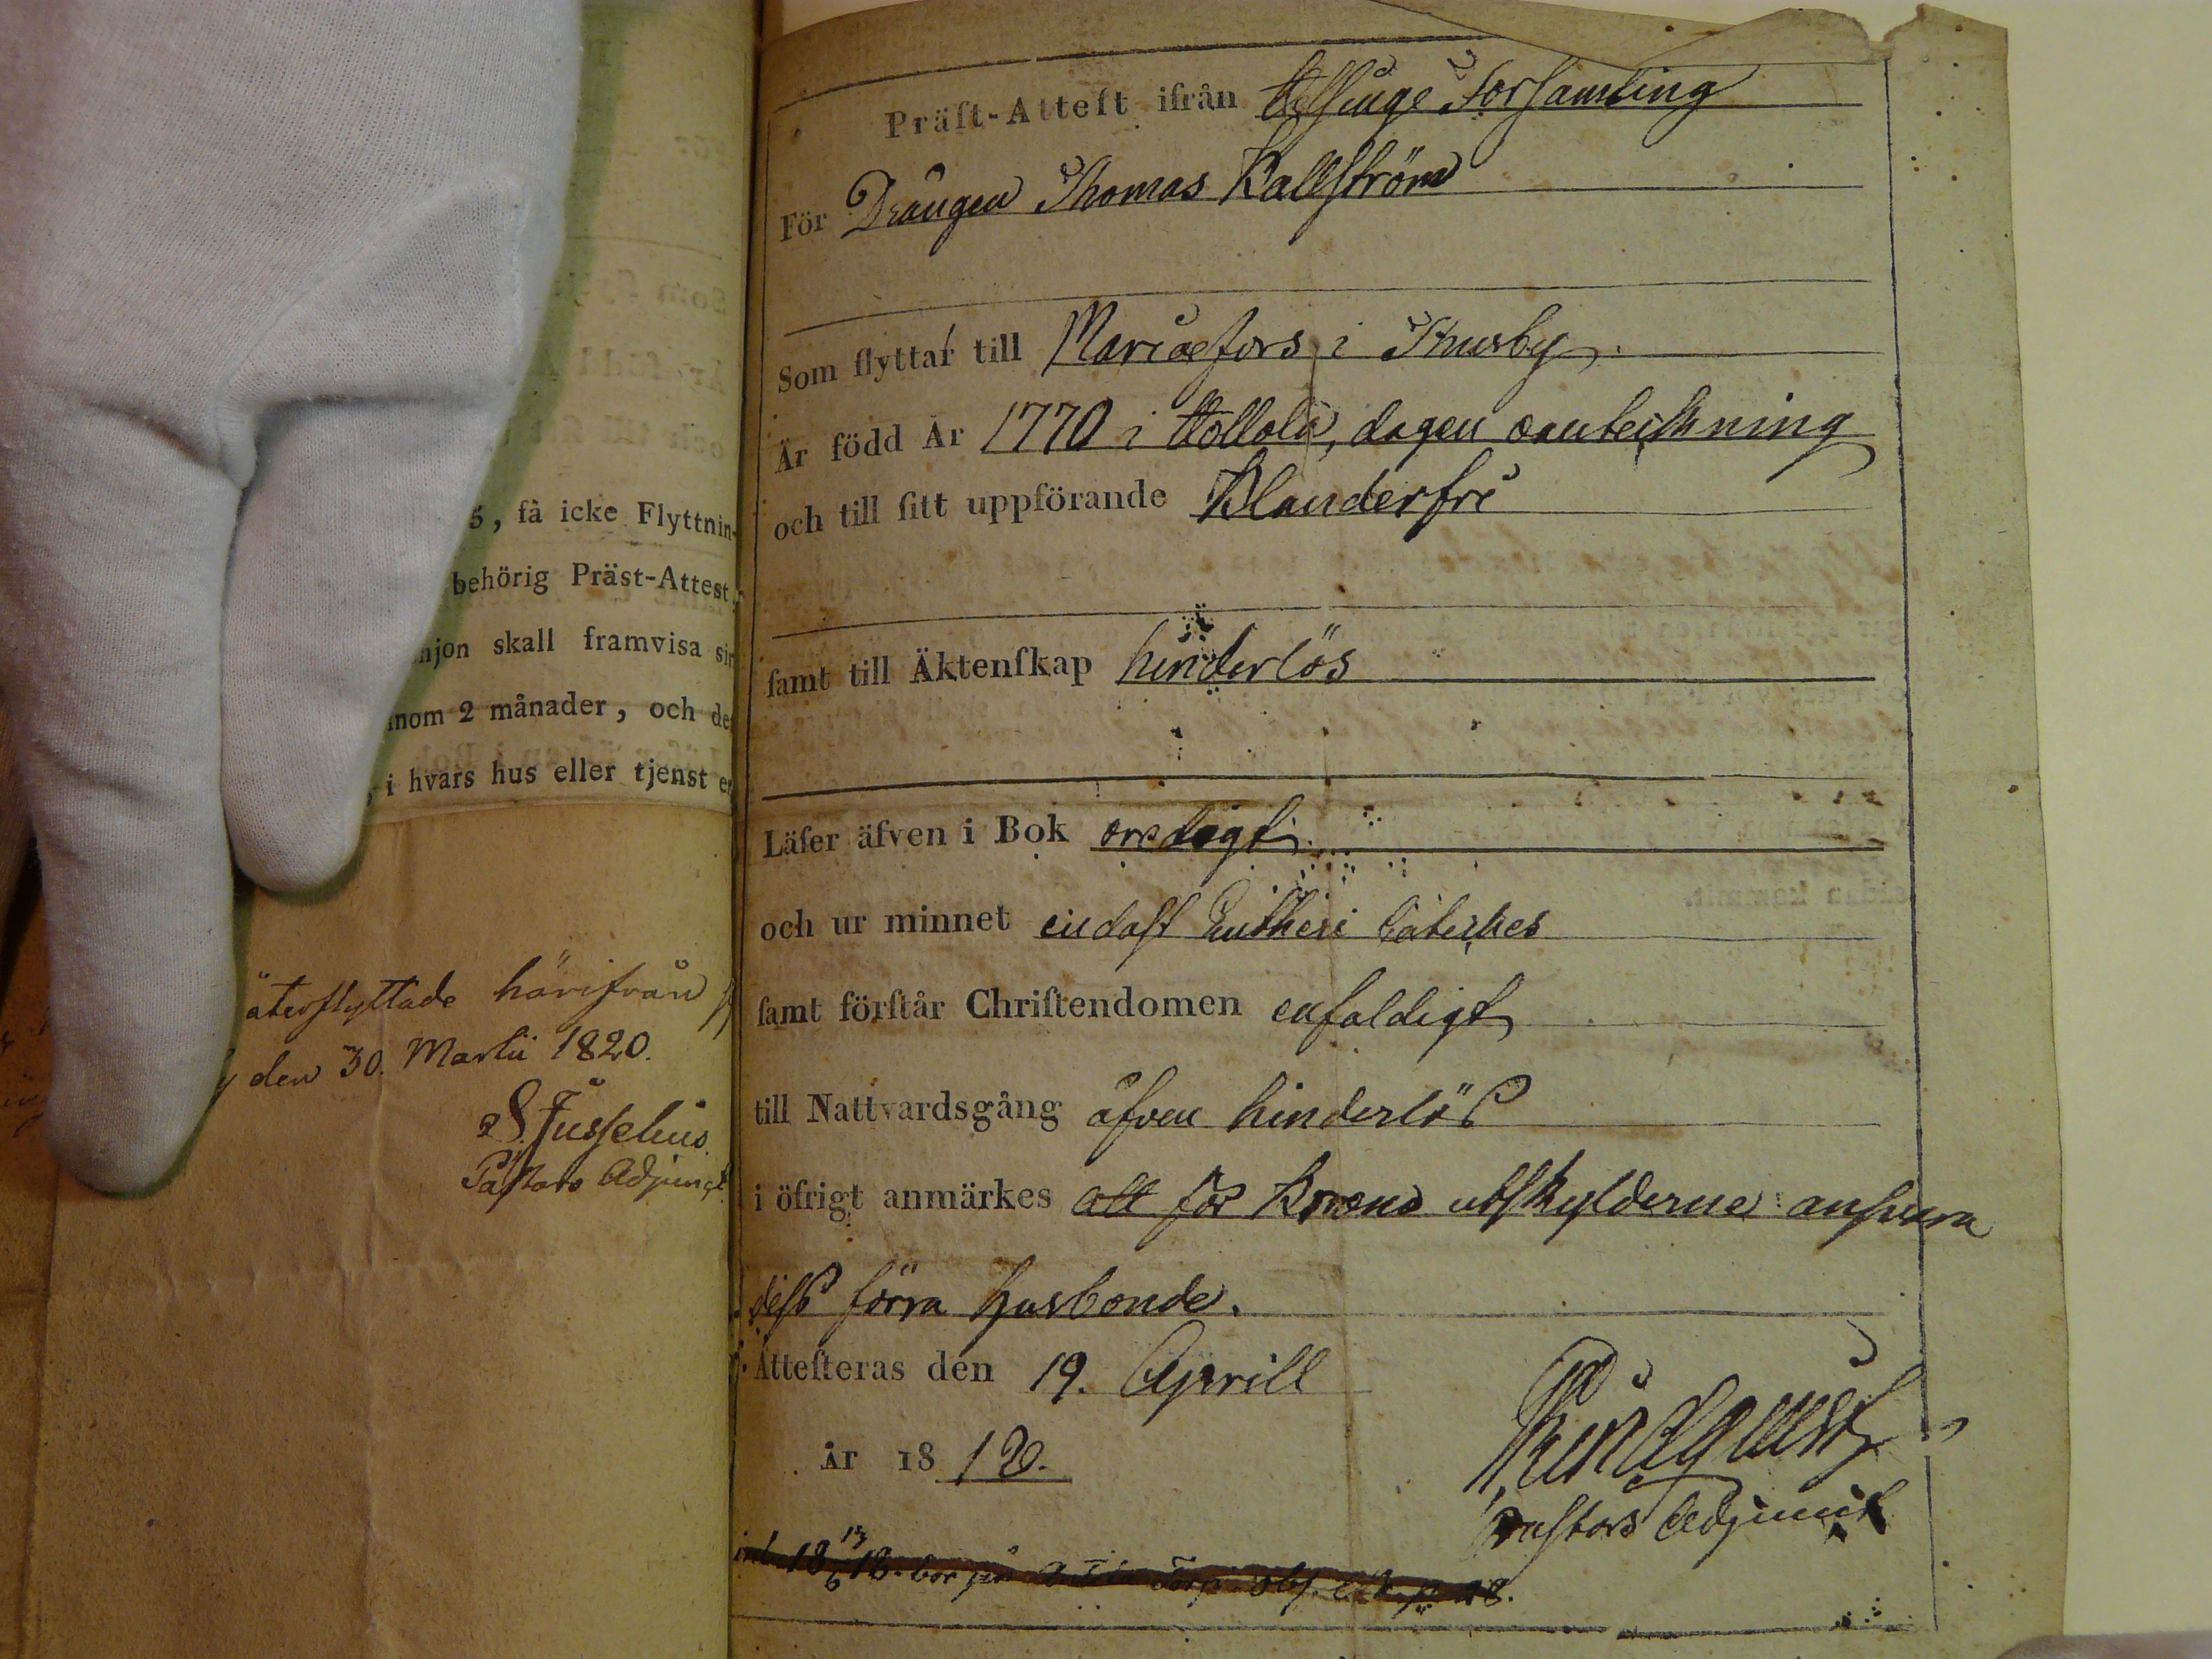 5, få icke Flyttnin-
behörig Präst-Attest
njon skall framvisa sin
inom 2 månader, och de
i hvars hus eller tjenst
återflyttade härifrån
den 30. Martii 1820.
Pastors Adjunct
Präſt-Atteſt ifrån Helsinge Församling
För Drängen Thomas Kallström
Som flyttar till Mariaefors i Thusby.
Är född År 1770 i Hollola, dagen oanteckning
och till ſitt uppförande Klanderfri
ſamt till Äktenſkap hinderlös
Läſer äfven i Bok oredigt
och ur minnet endast Lutheri Cateches
ſamt förſtår Chriſtendomen enfaldigt
till Nattvardsgång äfven hinderlös
i öfrigt anmärkes att för Krono utskylderne ansvara
dess förra husbonde.
Atteſteras den 19. Aprill
år 18 18.
Pastors Adjunct